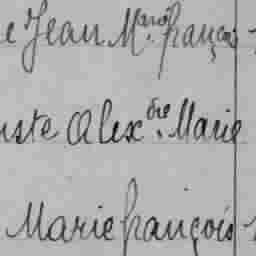 e Jean M.arie françois
uste Alex.dre Marie
Marie françois